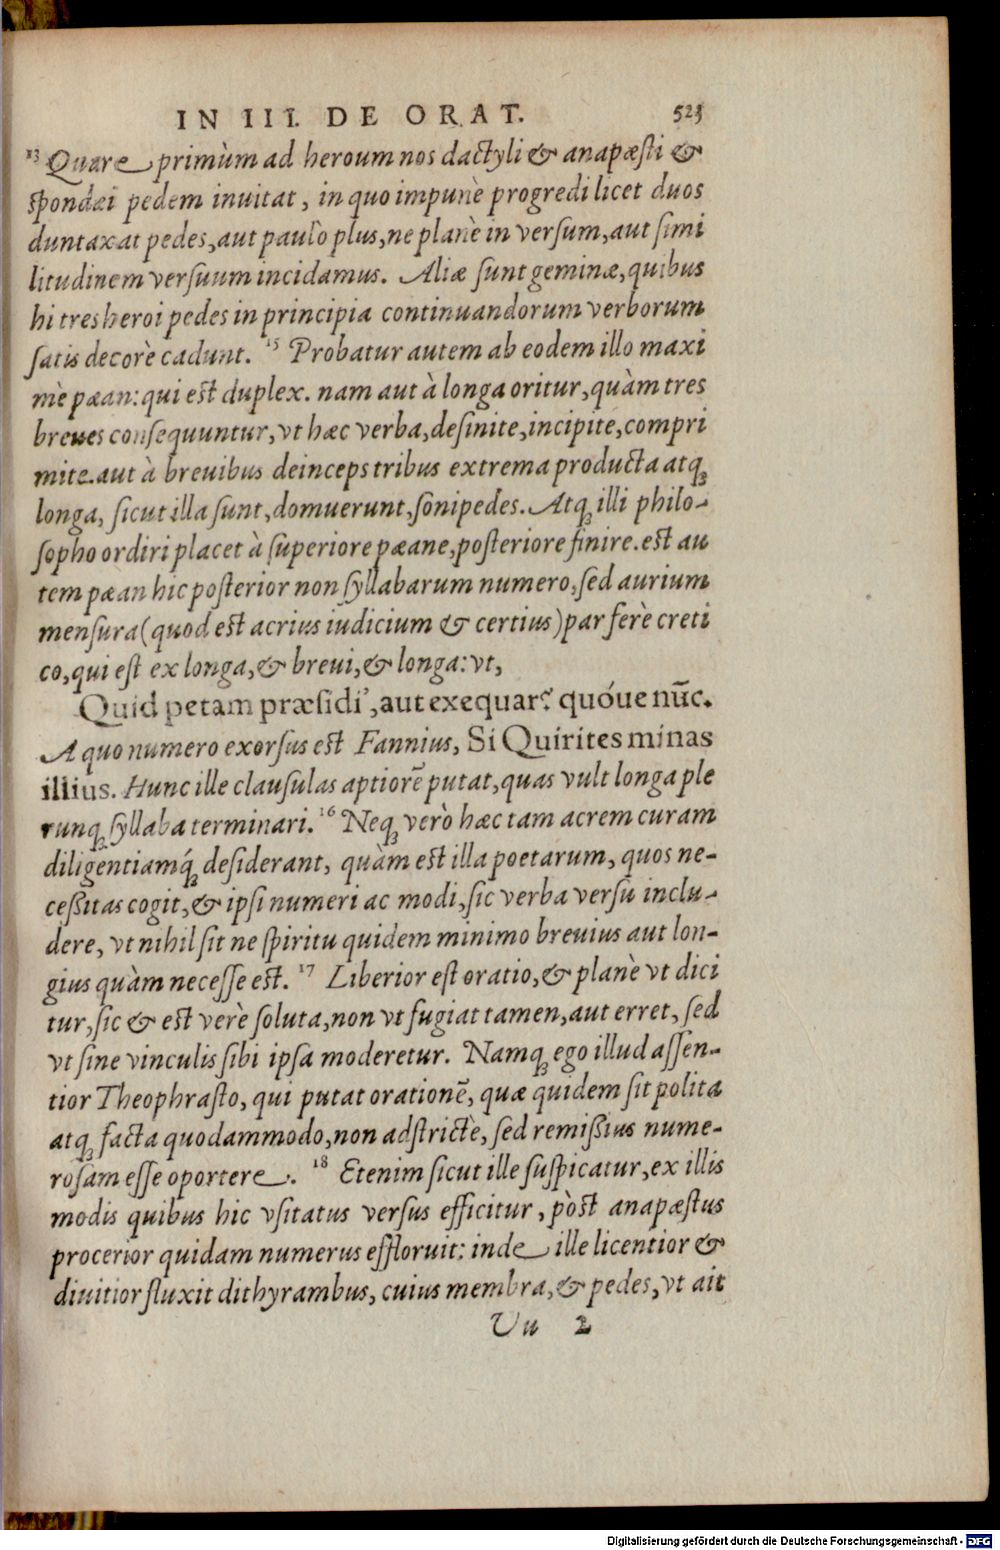 IN III. DE ORAT. 523
13 Quare primùm ad heroum nos dactyli & anapæsti &
spondæi pedem inuitat, in quo impunè progredi licet duos
duntaxat pedes, aut paulo plus, ne planè in versum, aut simi
litudinem versuum incidamus. Aliæ sunt geminæ, quibus
hi tres heroi pedes in principia continuandorum verborum
satis decorè cadunt. 15 Probatur autem ab eodem illo maxi
mè pæan: qui est duplex. nam aut à longa oritur, quàm tres
breues consequuntur, vt hæc verba, desinite, incipite, compri
mite. aut à breuibus deinceps tribus extrema producta atq;
longa, sicut illa sunt, domuerunt, sonipedes. Atq; illi philo-
sopho ordiri placet à superiore pæane, posteriore finire. est au
tem pæan hic posterior non syllabarum numero, sed aurium
mensura (quod est acrius iudicium & certius) par ferè creti
co, qui est ex longa, & breui, & longa: vt,
Quid petam præsidi', aut exequar? quóue nūc.
A quo numero exorsus est Fannius, Si Quirites minas
illius. Hunc ille clausulas aptiorē putat, quas vult longa ple
runq; syllaba terminari. 16 Neq; verò hæc tam acrem curam
diligentiamq́; desiderant, quàm est illa poetarum, quos ne-
cessitas cogit, & ipsi numeri ac modi, sic verba versu inclu-
dere, vt nihil sit ne spiritu quidem minimo breuius aut lon-
gius quàm necesse est. 17 Liberior est oratio, & planè vt dici
tur, sic & est verè soluta, non vt fugiat tamen, aut erret, sed
vt sine vinculis sibi ipsa moderetur. Namq; ego illud assen-
tior Theophrasto, qui putat orationē, quæ quidem sit polita
atq; facta quodammodo, non adstrictè, sed remissius nume-
rosam esse oportere. 18 Etenim sicut ille suspicatur, ex illis
modis quibus hic vsitatus versus efficitur, pòst anapæstus
procerior quidam numerus effloruit: inde ille licentior &
diuitior fluxit dithyrambus, cuius membra, & pedes, vt ait
Vu 2
Digitalisierung gefördert durch die Deutsche Forschungsgemeinschaft - DFG